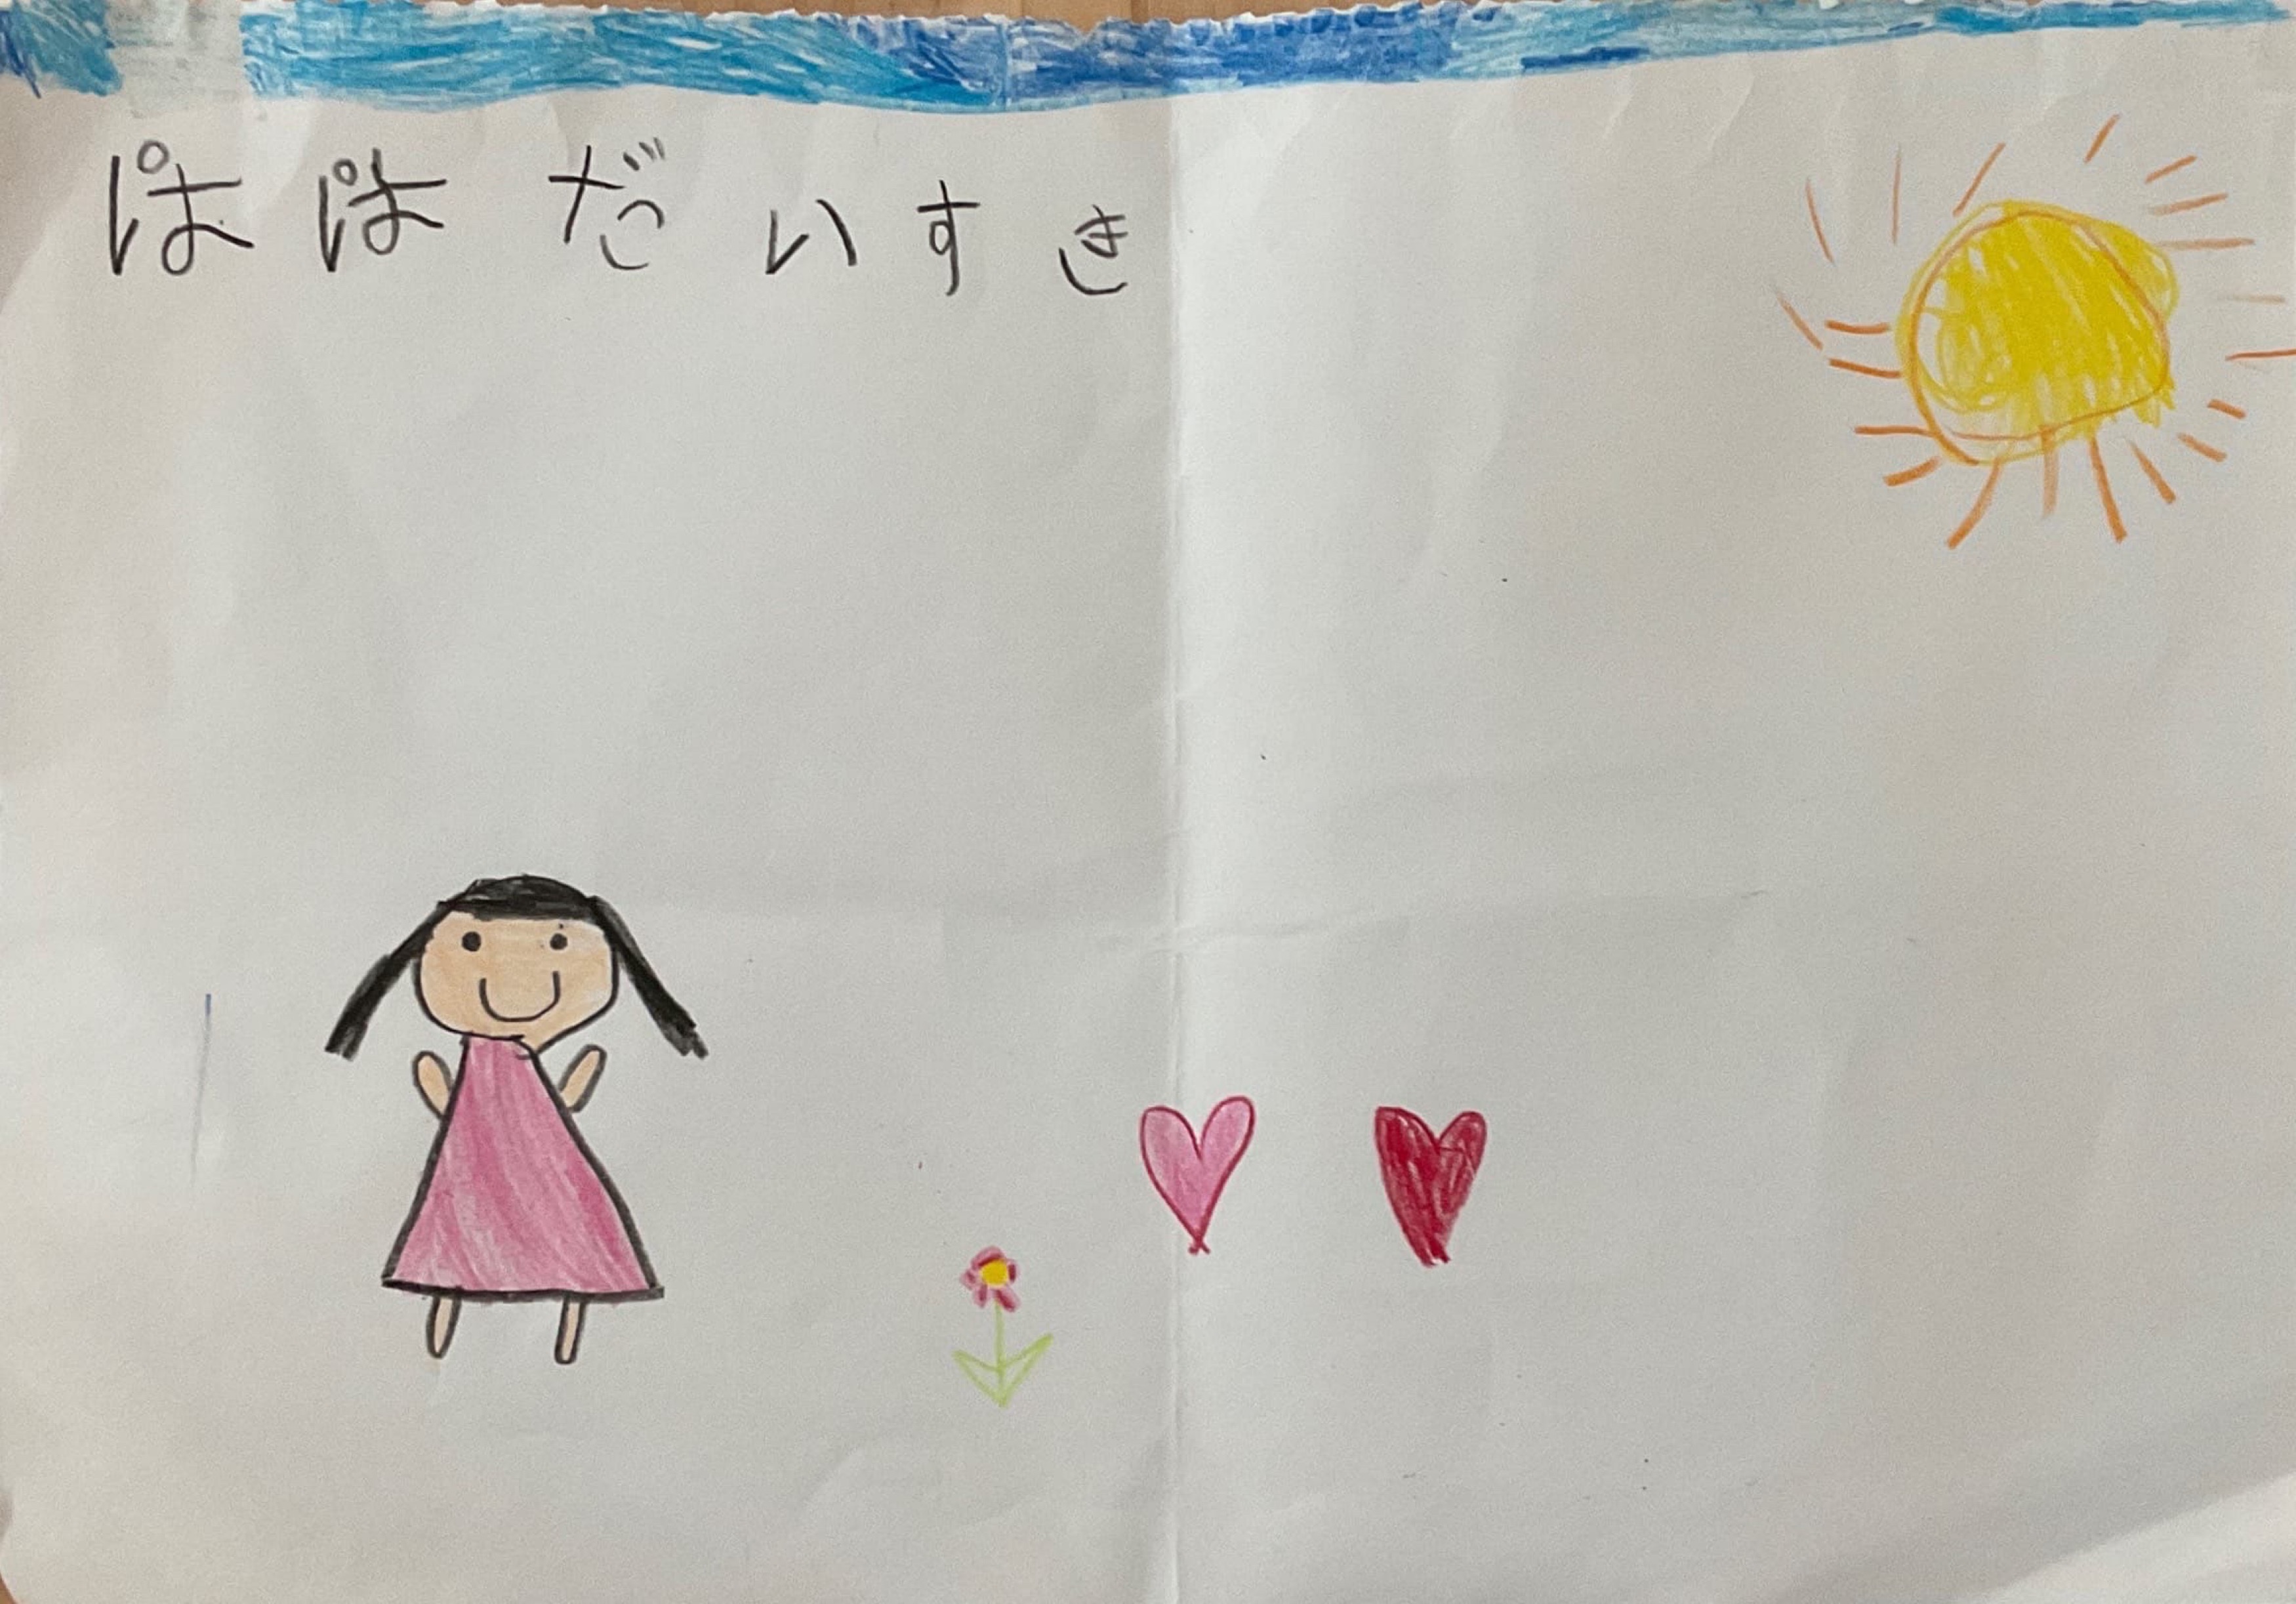 ぱぱだいすき